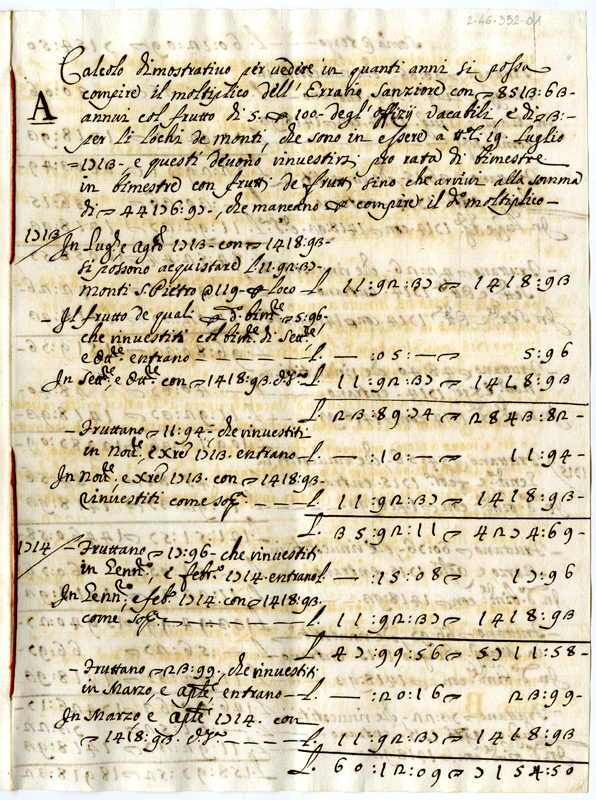 2-46-352-01
A
Calcolo dimostrativo per vedere in quanti anni si possa
compire il moltiplico dell' Errario Sanziore con ▽ 8513:63-
annui col frutto di 5. p 100- degl' offizij vacabili, e di ▽ 3:-
per li Lochi de monti, che sono in essere à tt.o li 19. Luglio
=1713- e questi devono rinvestirsi pro rata di bimestre
in bimestre con frutti de frutti sino che arrivi alla somma
di ▽ 44176:97., che mancano p compire il d.o moltiplico-
1713/ In Lug. e ag.to 1713- con ▽ 1418:93-
si possono acquistare L. 11:92:37-
monti S. Pietro @ 119- p Loco - L. 11:92:37 ▽ 1418:93
- Il frutto de quali p d.o bim.re ▽ 5:96-
che rinvestiti col bim.re di Sett.re
e Ott.re entrano - - - - L. — :05:— ▽ 5:96
In Sett.re, e Ott.re con ▽ 1418:93. L. 11:92:37 ▽ 1418:93
L. 23:89:74 ▽ 2843:82-
- Fruttano ▽ 11:94-, che rinvestiti
in Nov.re, e Xre 1713- entrano - L. — :10:— ▽ 11:94-
In Nov.re e Xre 1713- con ▽ 1418:93-
rinvestiti come sop.a - - - - L. 11:92:37 ▽ 1418:93-
L. 35:92:11 ▽ 4274:69-
1714/ - Fruttano ▽ 17:96- che rinvestiti
in Genn.o, e feb.o 1714 entrano L. — :15:08 ▽ 17:96
In Genn.o, e feb.o 1714. con ▽ 1418:93.
come sop.a - - - - L. 11:92:37 ▽ 1418:93
L. 47:99:56 ▽ 5711:58-
- Fruttano ▽ 23:99., che rinvestiti
in Marzo, e Aple entrano - L. — :20:16 ▽ 23:99-
In Marzo e Aple 1714. con
▽ 1418:93. - - - - L. 11:92:37 ▽ 1418:93
L. 60:12:09 ▽ 7154:50